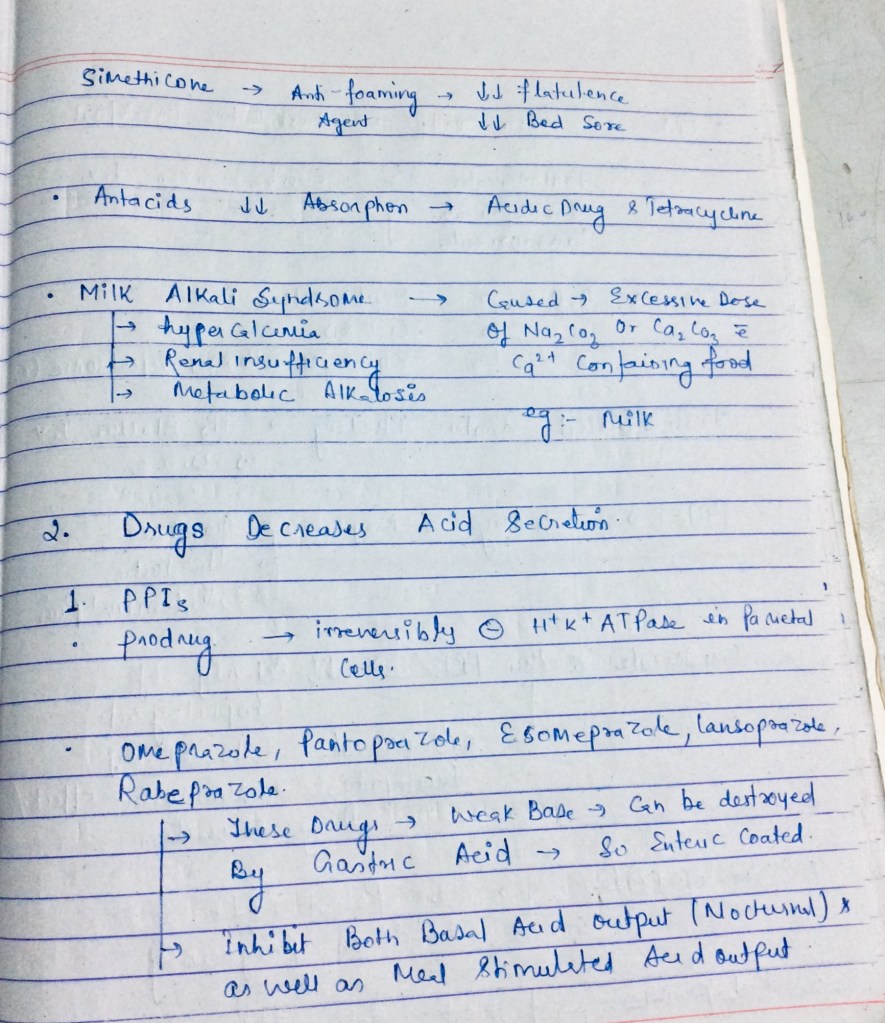 Simethicone → Anti-foaming → ↓↓ flatulence
Agent ↓↓ Bed Sore
• Antacids ↓↓ Absorption → Acidic Drug & Tetracycline
• Milk Alkali Syndrome → Caused → Excessive Dose
→ hypercalcemia of Na₂CO₃ Or Ca₂CO₃ c̄
→ Renal insufficiency Ca²⁺ Containing food
→ Metabolic Alkalosis
eg:- Milk
2. Drugs Decreases Acid Secretion.
1. PPIs
• prodrug → irreversibly ⊖ H⁺K⁺ATPase in Parietal
Cells.
• Omeprazole, Pantoprazole, Esomeprazole, Lansoprazole,
Rabeprazole.
→ These Drugs → Weak Base → Can be destroyed
By Gastric Acid → So Enteric Coated.
→ Inhibit Both Basal Acid output (Nocturnal) &
as well as Meal Stimulated Acid output